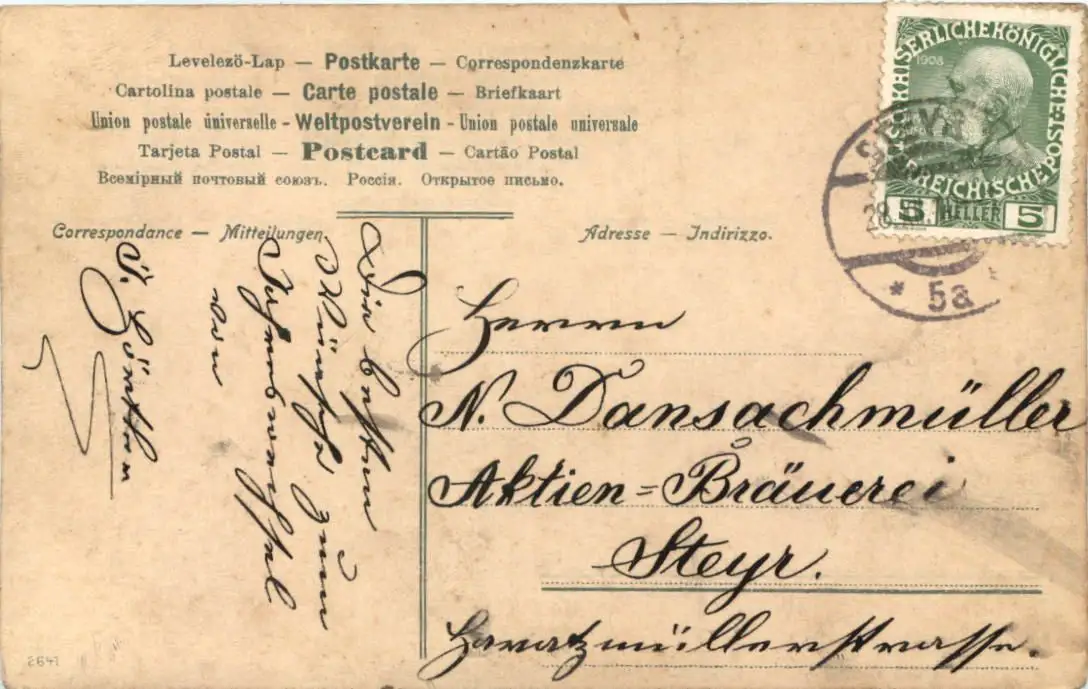 Levelező-Lap — Postkarte — Correspondenzkarte
Cartolina postale — Carte postale — Briefkaart
Union postale universelle - Weltpostverein - Union postale universale
Tarjeta Postal — Postcard — Cartão Postal
Всемірный почтовый союзъ. Россія. Открытое письмо.
Correspondance — Mitteilungen.
Adresse — Indirizzo.
1908
5 HELLER 5
STEYR
28.
* 5a
Die besten
Wünsche zum
Jahreswechsel
von
Herrn
N. Dansachmüller
Aktien=Bräuerei
Steyr.
Haratzmüllerstrasse.
2641